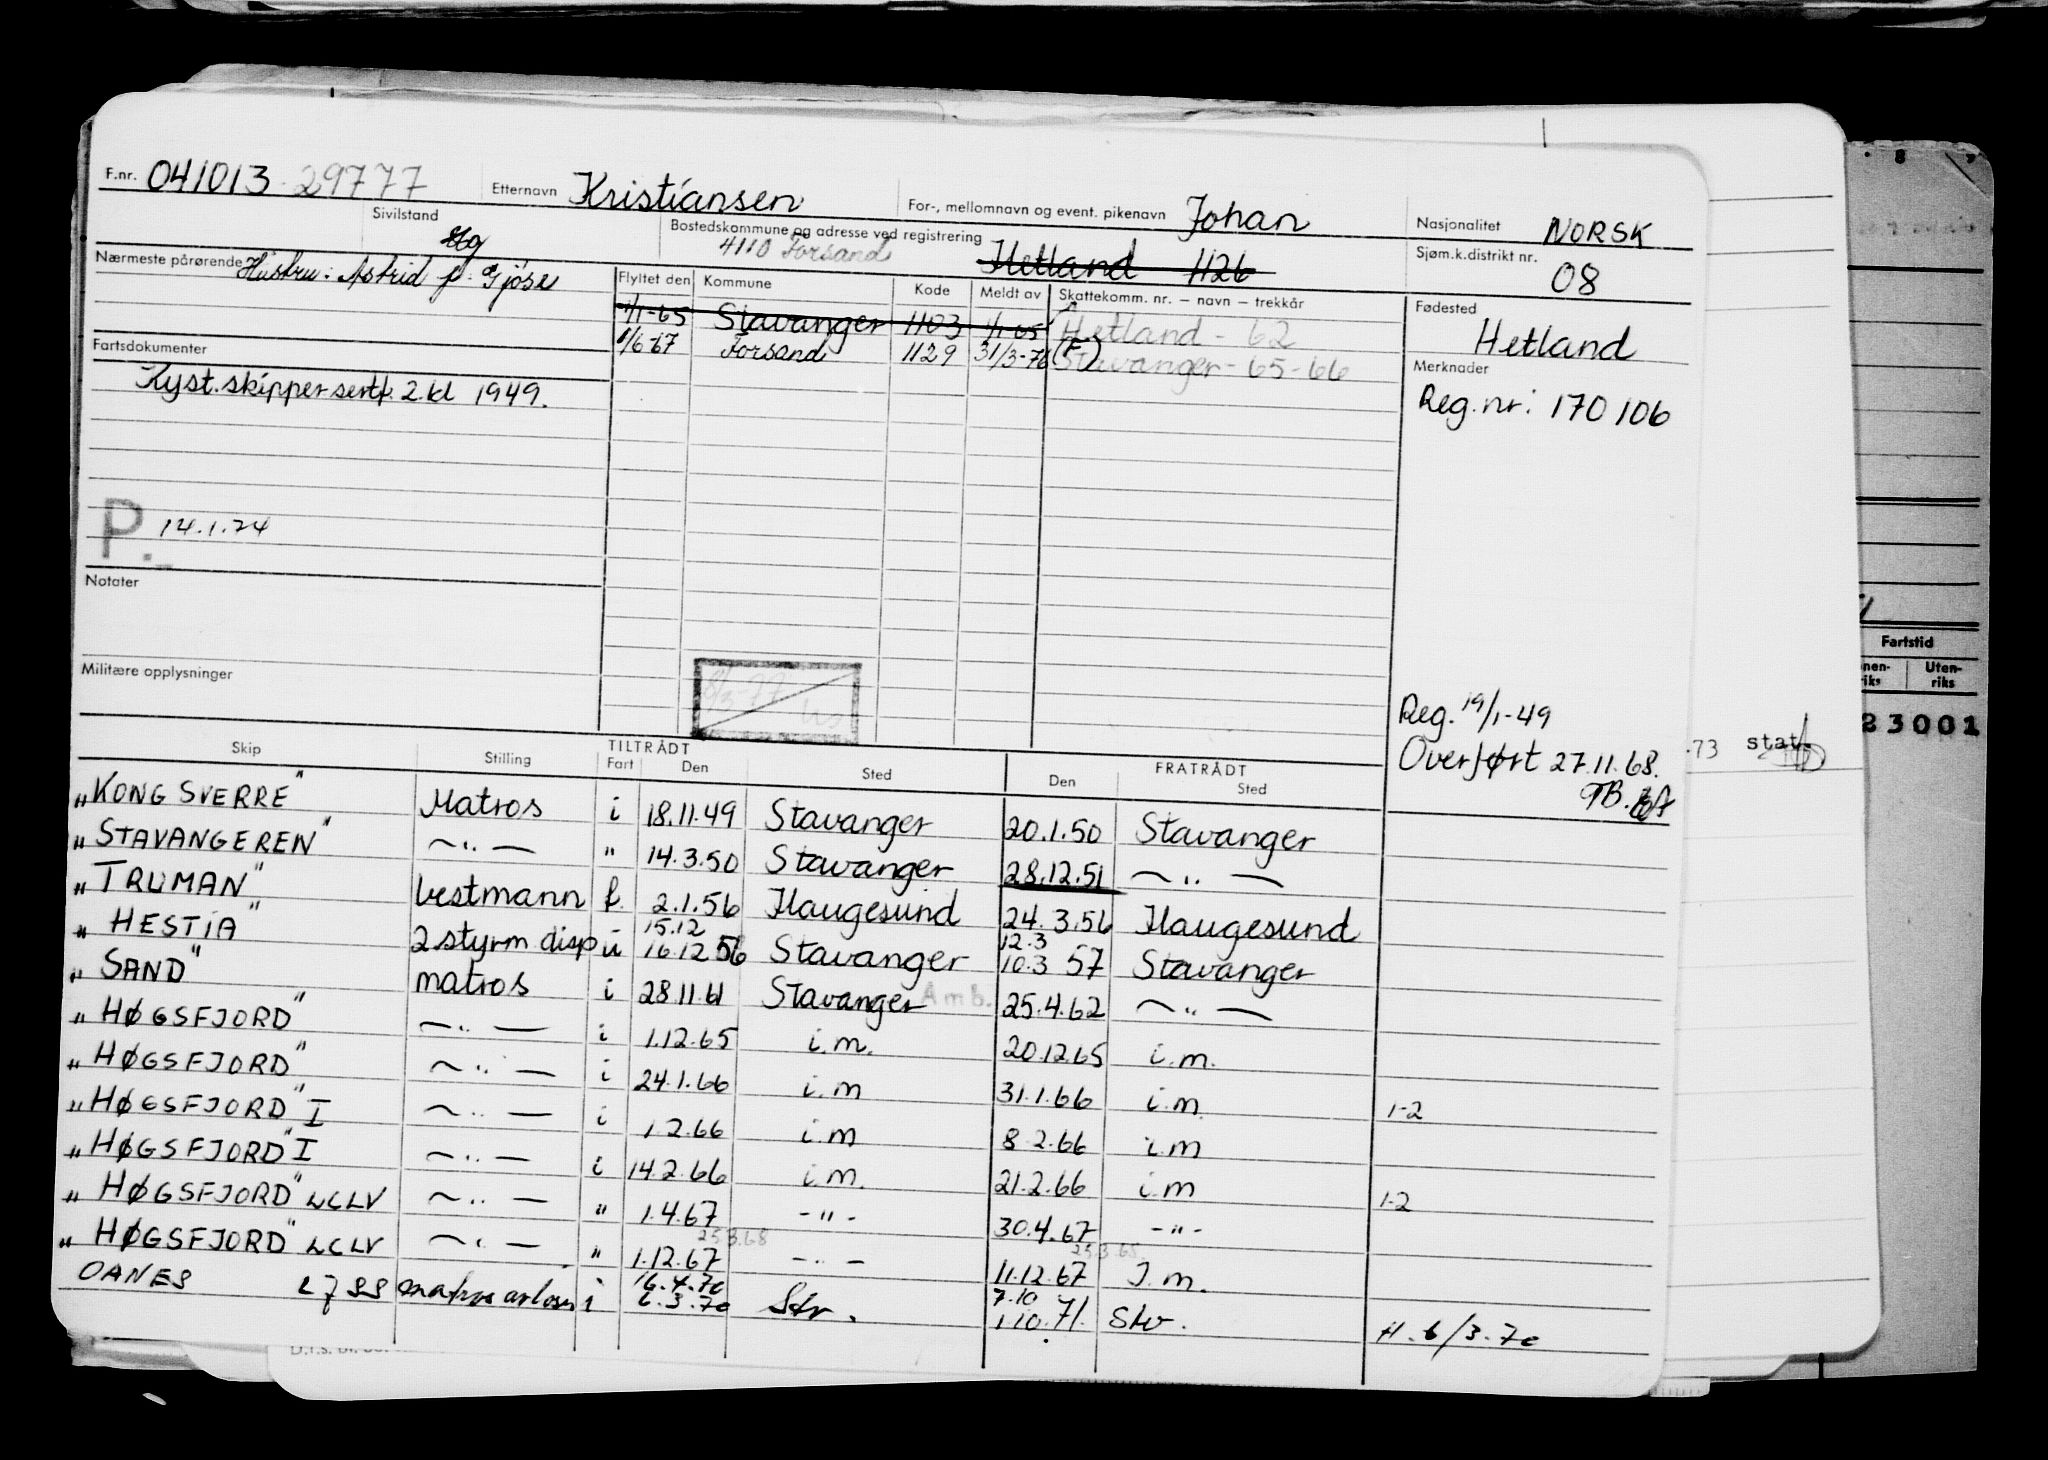 F.nr. 041013 29777 Etternavn Kristiansen For-, mellomnavn og event. pikenavn Johan Nasjonalitet NORSK
Sivilstand g Bostedskommune og adresse ved registrering 4110 Forsand Hetland 1126 Sjøm.k.distrikt nr. 08
Nærmeste pårørende Hustru: Astrid f. Gjøse Flyttet den Kommune Kode Meldt av Skattekomm. nr. – navn – trekkår Fødested
1/1-65 Stavanger 1103 1/1-65 Hetland - 62 Hetland
1/6-67 Forsand 1129 31/3-76 (F) Stavanger - 65-66
Fartsdokumenter Merknader
Kyst.skippersertf. 2. kl 1949. Reg.nr: 170106
P. 14.1.74
Notater
Militære opplysninger
8/3-77
Reg. 19/1-49
Overført 27.11.68.
TB.
Skip Stilling TILTRÅDT Fart Den Sted FRATRÅDT Den Sted
"KONG SVERRE" Matros i 18.11.49 Stavanger 20.1.50 Stavanger
"STAVANGEREN" —"— " 14.3.50 Stavanger 28.12.51 —"—
"TRUMAN" Lestmann f. 2.1.56 Haugesund 24.3.56 Haugesund
15.12 12.3
"HESTIA" 2 styrm disp u 16.12 56 Stavanger 10.3 57 Stavanger
"SAND" matros i 28.11.61 Stavanger Amb. 25.4.62 —"—
"HØGSFJORD" —"— i 1.12.65 i.m. 20.12.65 i.m.
"HØGSFJORD" —"— i 24.1.66 i.m 31.1.66 i.m. 1-2
"HØGSFJORD" I —"— i 1.2.66 i.m 8.2.66 i.m
"HØGSFJORD" I —"— i 14.2.66 i.m. 21.2.66 i.m 1-2
"HØGSFJORD" LCLV —"— " 1.4.67 -"- 30.4.67 -"-
25.3.68 25.3.68
"HØGSFJORD" LCLV —"— " 1.12.67 -"- 11.12.67 I.m.
16.4.70 7.10
OANES matros i 6.3.70 Stv. 1.10.71. Stv. H. 6/3-70
Fartstid
Uten-
riks
23001
73 stat.